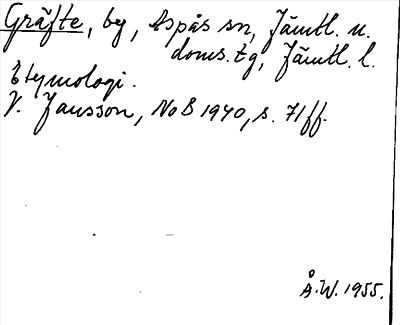 Gräfte, by, Aspås sn, Jämtl. n.
doms. tg, Jämtl. l.
Etymologi.
V. Jansson, NoB 1940, s. 71ff.
Å.W. 1955.